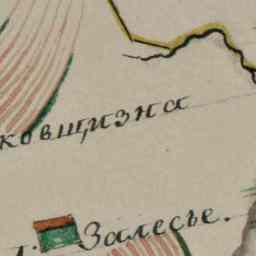 ковщизна
Залесье.